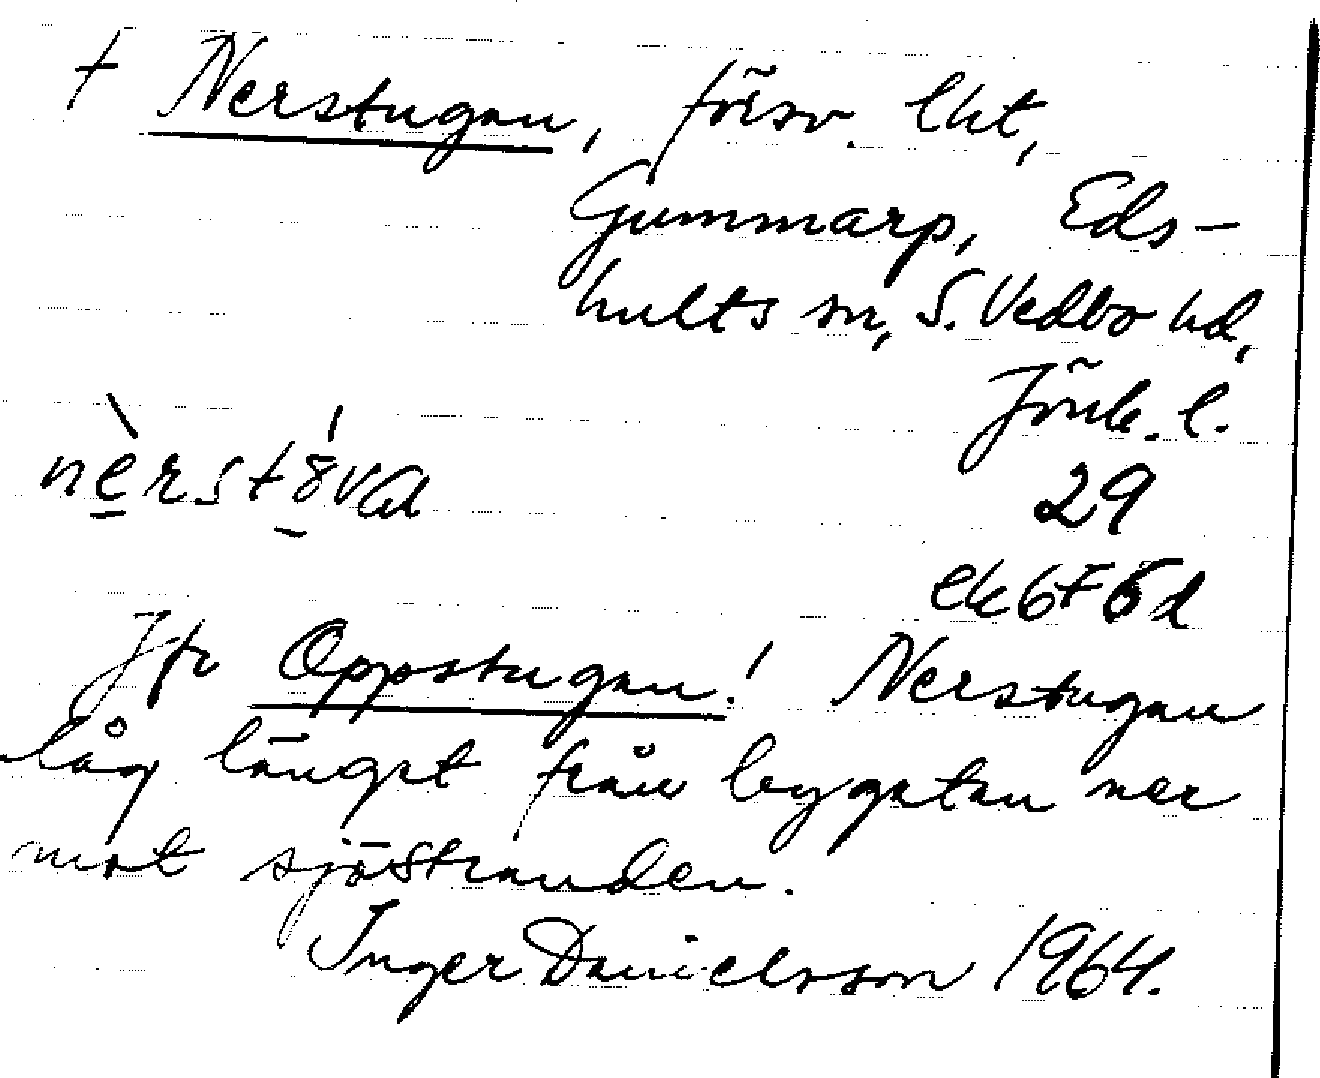 † Nerstugan, försv. lht,
Gummarp, Eds-
hults sn, S. Vedbo hd,
Jönk. l.
nèrstȣ́va
29
ek 6F6d
Jfr Oppstugan! Nerstugan
låg längst från bygatan ner
mot sjöstranden.
Inger Danielsson 1964.